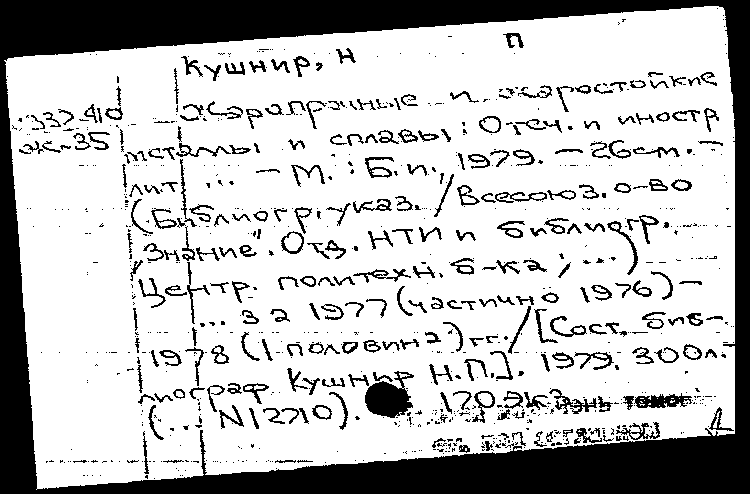 Кушнир, Н П
337.410 Жаропрочные и жаростойкие
ж-35 металлы и сплавы: Отеч. и иностр
лит. ... - М. : Б.и., 1979. - 26см. -
(Библиогр. указ. / Всесоюз. о-во
"Знание". Отд. НТИ и библиогр.
Центр. политехн. б-ка ; ...)
... за 1977 (частично 1976) -
1978 (1 половина) гг. / [Сост. биб-
лиограф Кушнир Н.П.]. 1979. 300л.
(... N 12710). 170 экз